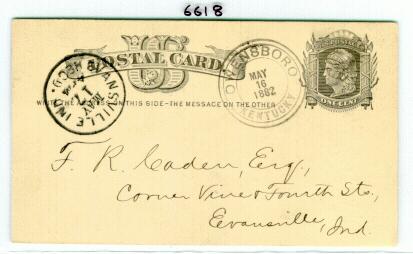 6618
US
POSTAL CARD
U.S. POSTAGE
ONE CENT
WRITE THE ADDRESS ON THIS SIDE-THE MESSAGE ON THE OTHER
OWENSBORO
MAY
16
1882
KENTUCKY
EVANSVILLE IND.
REC'D.
MAY
F. R. Caden, Esq.,
Corner Vine & Fourth Sts.,
Evansville, Ind.